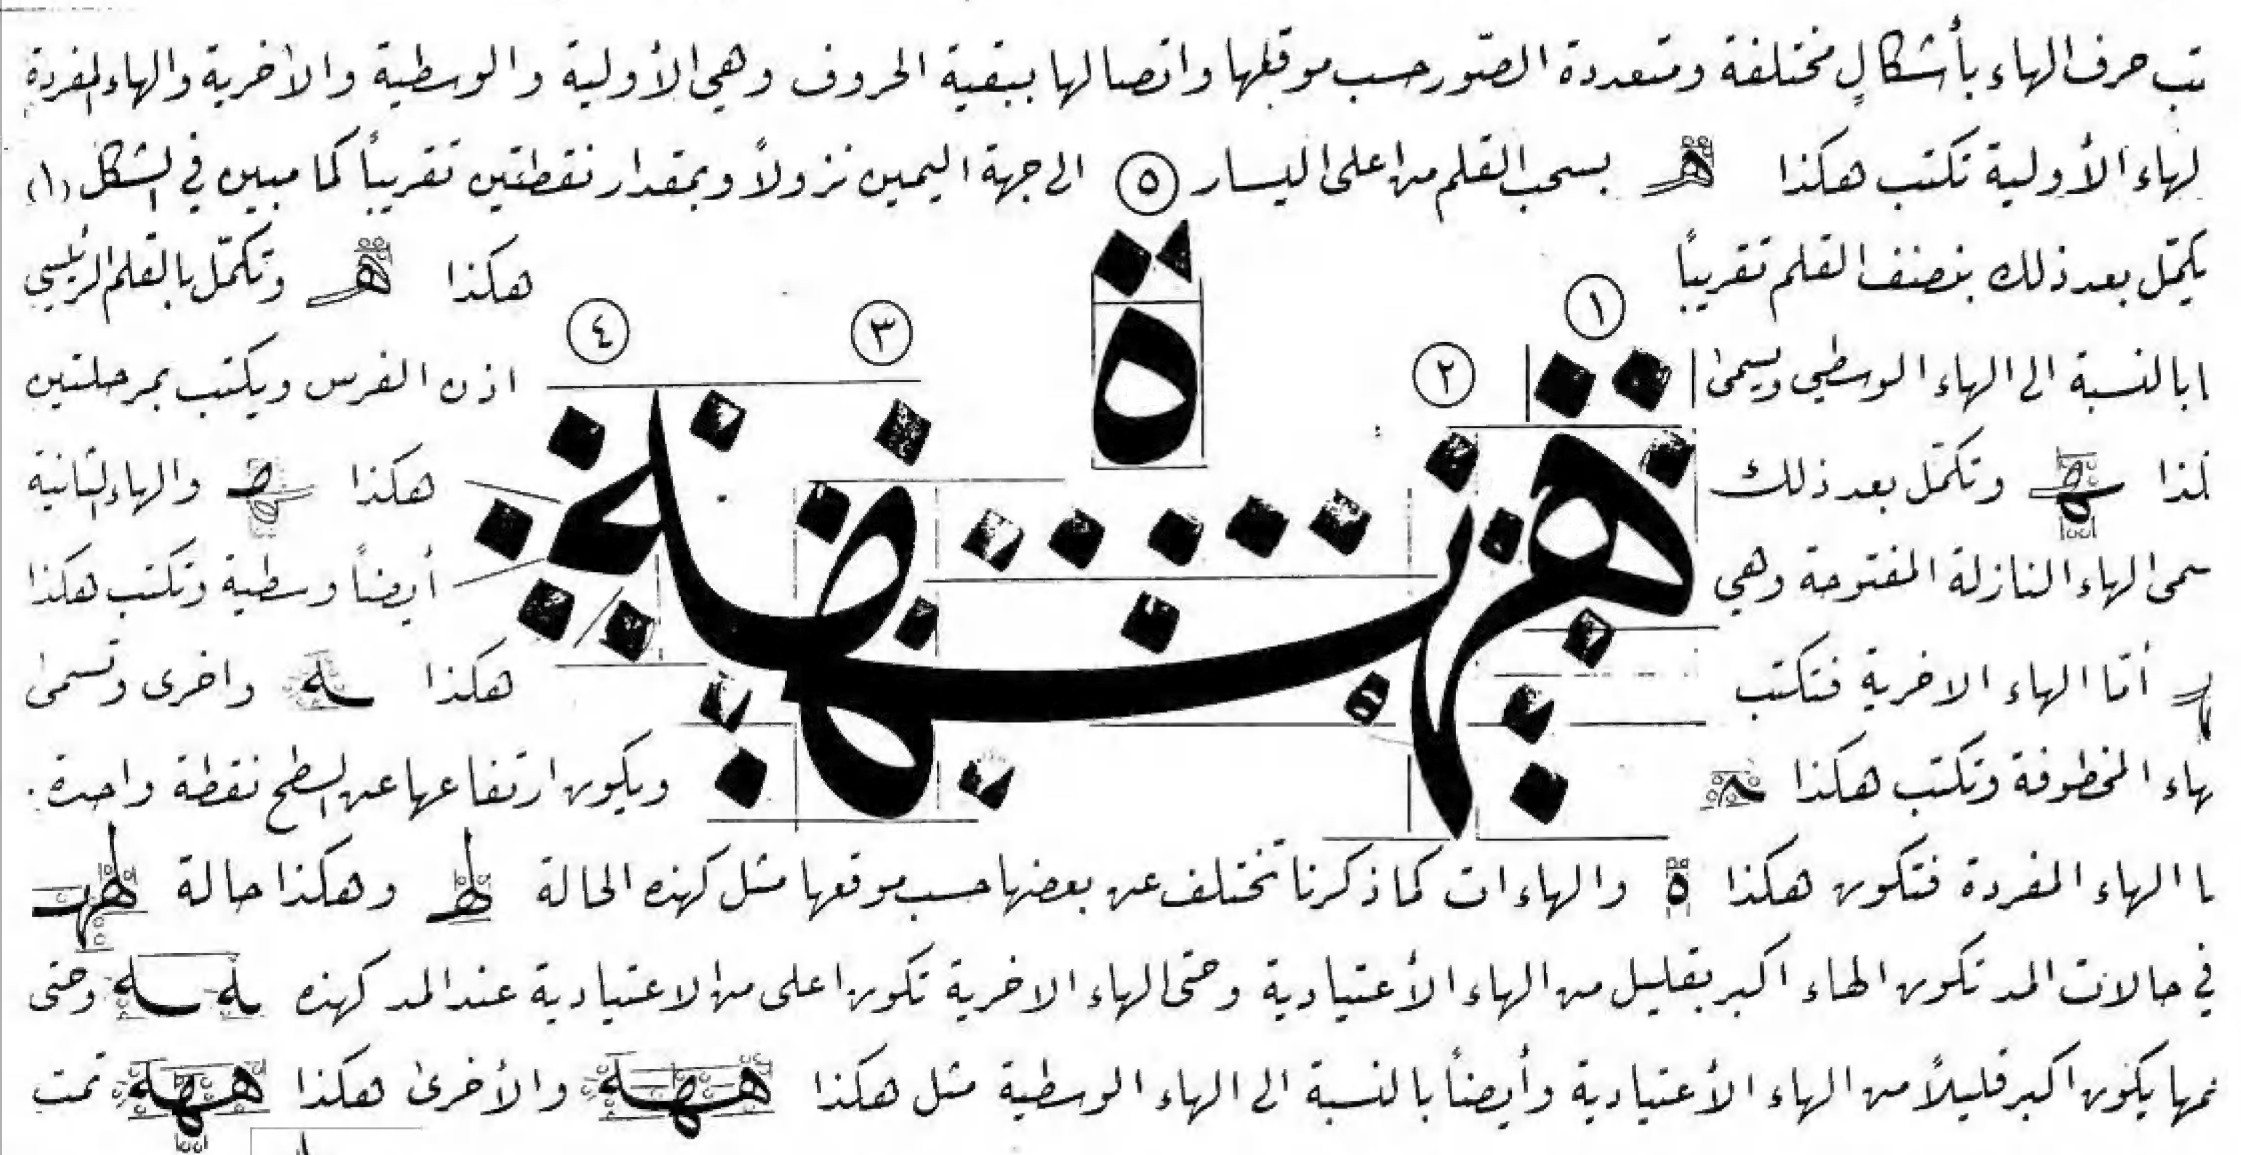 تب حرف الهاء بأشكالٍ مختلفة ومتعددة الصّور حسب موقعها واتصالها ببقية الحروف وهي الأولية والوسطية والاخرية والهاء المفردة
لهاء الأولية تكتب هكذا هـ بسحب القلم من اعلى اليسار ٥ الى جهة اليمين نزولاً وبمقدار نقطتين تقريباً كما مبين في الشكل (١)
يكمّل بعد ذلك بنصف القلم تقريباً هكذا هـ وتكمّل بالقلم الرئيسي
١
٢ ٣ ٤
ابالنسبة الى الهاء الوسطي ويسمىٰ اذن الفرس ويكتب بمرحلتين
كذا ـهـ وتكمّل بعد ذلك هكذا ـهـ والهاء الثانية
سمى الهاء النازلة المفتوحة وهي أيضاً وسطية وتكتب هكذا
أمّا الهاء الاخرية فتكتب هكذا ـه واخرى وتسمىٰ
هاء المخطوفة وتكتب هكذا ـه ويكون ارتفاعها عن السطح نقطة واحدة.
ا الهاء المفردة فتكون هكذا ه والهاءات كما ذكرنا تختلف عن بعضها حسب موقعها مثل كهذه الحالة وهكذا حالة
في حالات المد تكون الهاء اكبر بقليل من الهاء الأعتيادية وحتى الهاء الاخرية تكون اعلى من الاعتيادية عند المد كهذه ـه ـه وحتى
نها يكون اكبر قليلاً من الهاء الأعتيادية وأيضاً بالنسبة الى الهاء الوسطية مثل هكذا ههه والأخرىٰ هكذا ههه تمت